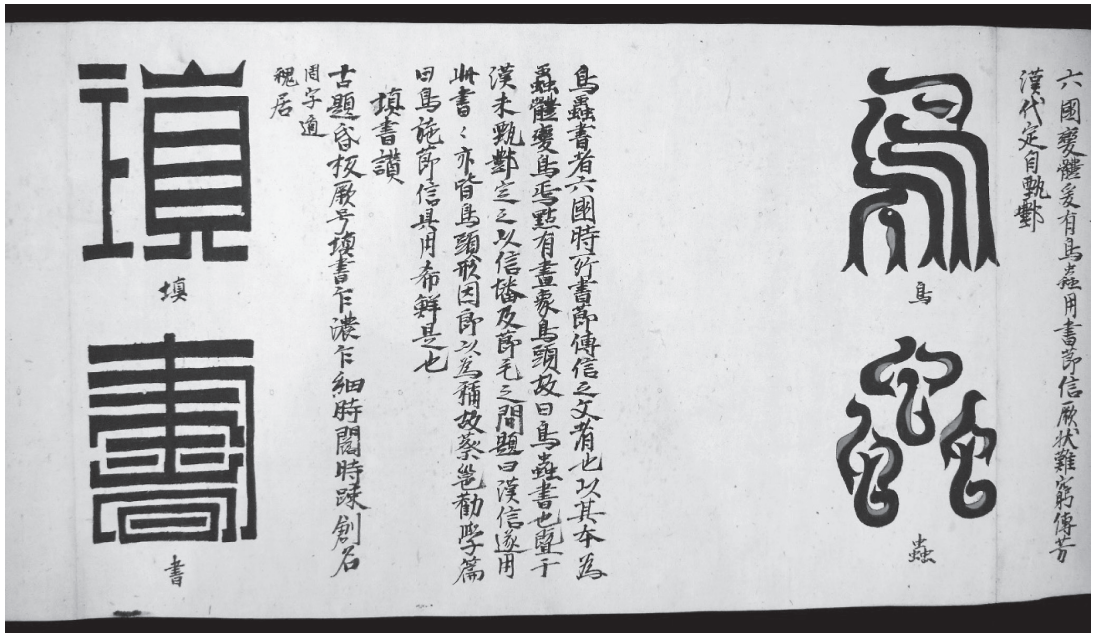 六國變體爰有鳥蟲用書節信厥狀難窮傳芳
漢代定自甄酆
鳥
蟲
鳥
蟲
鳥蟲書者六國時所書節傳信之文者也以其本為
蟲體變鳥焉點有畫象鳥頭故曰鳥蟲書也暨于
漢末甄酆定之以信旛及節毛之間題曰漢信遂用
此書〻亦皆鳥頭形因節以為稱故蔡邕勸學篇
曰鳥施節信具用希鮮是也
填書讃
古題昏板厥号填書乍濃乍細時闊時踈創名
周字適
槐居
填
填
書
書